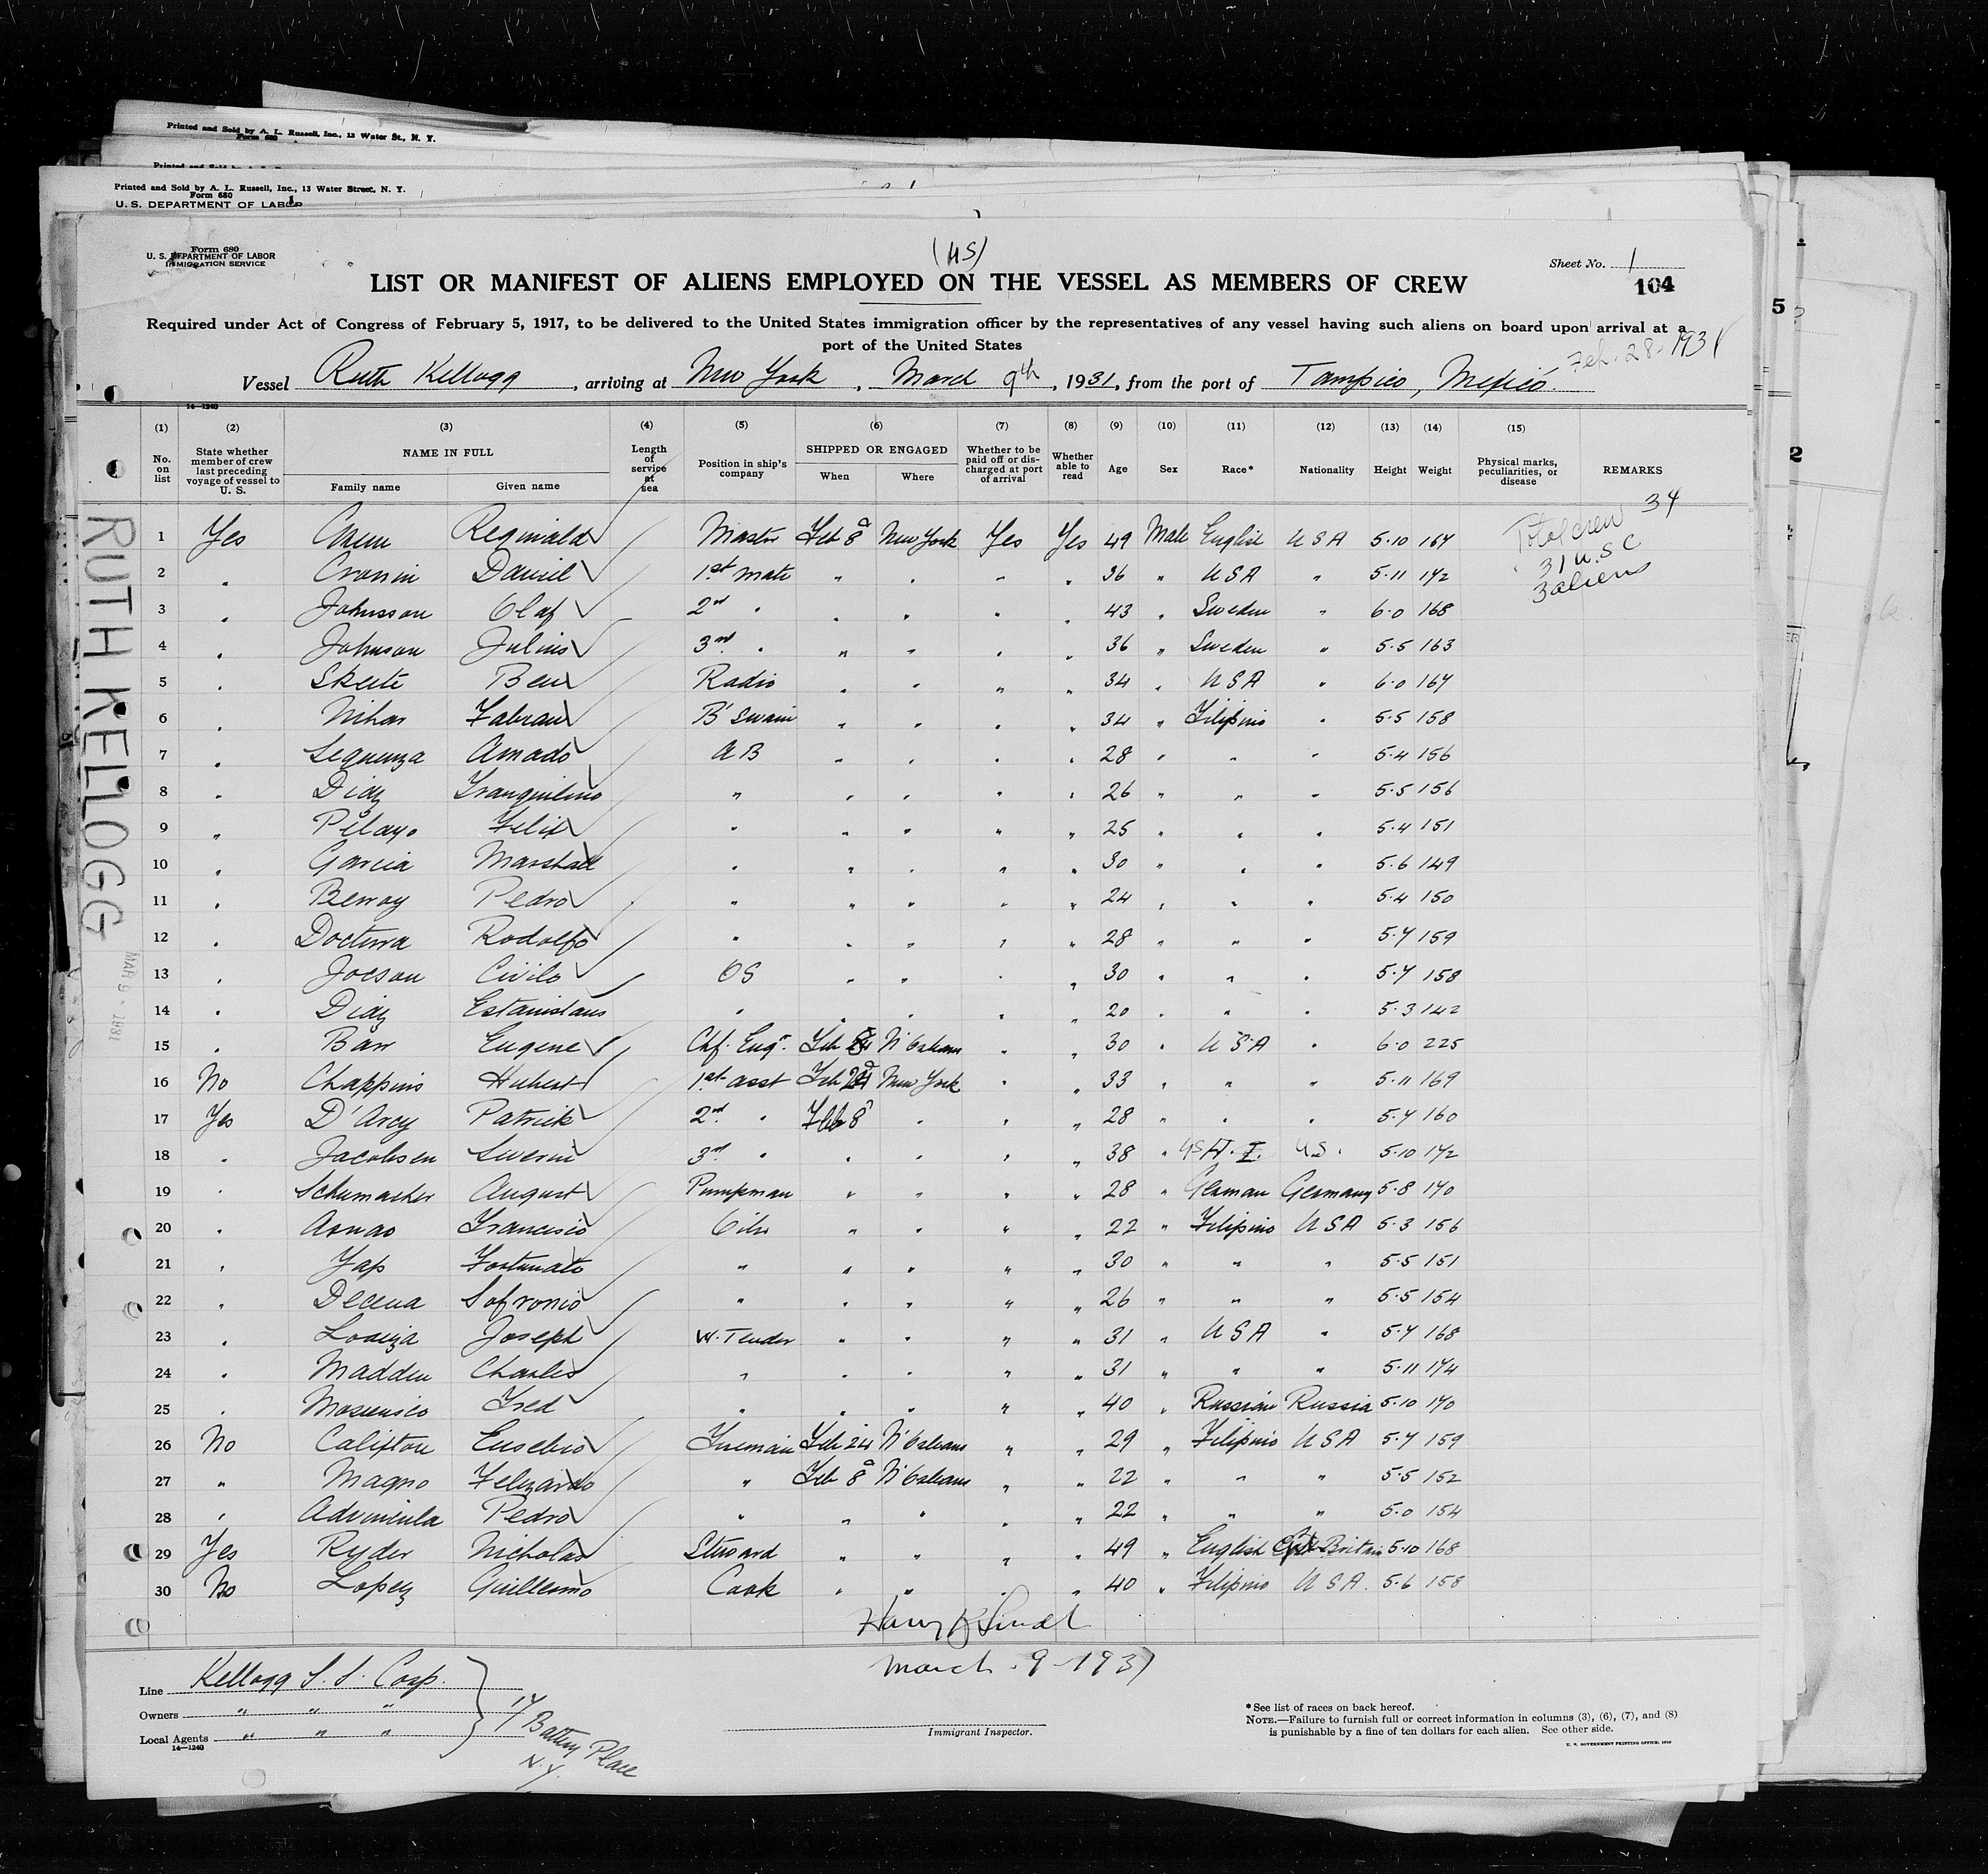 Printed and Sold by A. L. Russell, Inc., 13 Water St., N. Y.
Form 680
Printed and Sold by A. L. Russell, Inc., 13 Water Street, N. Y.
Form 680
U. S. DEPARTMENT OF LABOR
Form 680
U. S. DEPARTMENT OF LABOR
IMMIGRATION SERVICE
(US)
Sheet No. 1
LIST OR MANIFEST OF ALIENS EMPLOYED ON THE VESSEL AS MEMBERS OF CREW
104
Required under Act of Congress of February 5, 1917, to be delivered to the United States immigration officer by the representatives of any vessel having such aliens on board upon arrival at a
port of the United States
Feb. 28-1931
Vessel Ruth Kellogg, arriving at New York, March 9th, 1931, from the port of Tampico, Mexico.
14-1240
(1) (2) (3) (4) (5) (6) (7) (8) (9) (10) (11) (12) (13) (14) (15)
No. on list State whether member of crew last preceding voyage of vessel to U. S. NAME IN FULL Family name Given name Length of service at sea Position in ship's company SHIPPED OR ENGAGED When Where Whether to be paid off or discharged at port of arrival Whether able to read Age Sex Race* Nationality Height Weight Physical marks, peculiarities, or disease REMARKS
Total crew 34
31 U.S.C
3 aliens
1 Yes Reginald Master Feb 8 New York Yes Yes 49 Male English USA 5-10 167
2 " Cronin Daniel 1st mate " " " " 36 " USA " 5-11 172
3 " Johnsson Olaf 2nd " " " " " 43 " Sweden " 6-0 168
4 " Johnson Julius 3rd " " " " " 36 " Sweden " 5-5 163
5 " Skeete Ben Radio " " " " 34 " USA " 6-0 167
6 " Fabian B'Swain " " " " 34 " Filipino " 5-5 158
7 " Amado AB " " " " 28 " " " 5-4 156
8 " Diaz Tranquilino " " " " " 26 " " " 5-5 156
9 " Pelayo Felix " " " " " 25 " " " 5-4 151
10 " Garcia Marshall " " " " " 30 " " " 5-6 149
11 " Pedro " " " " " 24 " " " 5-4 150
12 " Rodolfo " " " " " 28 " " " 5-7 159
13 " Jocson Civilo OS " " " " 30 " " " 5-7 158
14 " Diaz Estanislaus " " " " " 20 " " " 5-3 142
15 " Barr Eugene Chf. Engr. Feb N'Orleans " " 30 " USA " 6-0 225
16 No Chappins Hubert 1st asst Feb New York " " 33 " " " 5-11 169
17 Yes D'Arcy Patrick 2nd " Feb 8 " " " 28 " " " 5-7 160
18 " Jacobsen Severin 3rd " " " " " 38 " U.S. 5-10 172
19 " Schumacher August Pumpman " " " " 28 " German Germany 5-8 170
20 " Arnao Francisco Oiler " " " " 22 " Filipino USA 5-3 156
21 " Yap Fortunato " " " " " 30 " " " 5-5 151
22 " Decena Sofronio " " " " " 26 " " " 5-5 154
23 " Joseph W. Tender " " " " 31 " USA " 5-7 168
24 " Madden Charles " " " " " 31 " " " 5-11 174
25 " Fred " " " " " 40 " Russian Russia 5-10 170
26 No Calixton Eusebio Fireman Feb 24 N'Orleans " " 29 " Filipino USA 5-7 159
27 " Magno Felizardo " Feb 8 N'Orleans " " 22 " " " 5-5 152
28 " Advincula Pedro " " " " " 22 " " " 5-0 154
29 Yes Ryder Nicholas Steward " " " " 49 " English Gt Britain 5-10 168
30 No Lopez Guillermo Cook " " " " 40 " Filipino USA. 5-6 158
RUTH KELLOGG
MAR 9 - 1931
March-9-1931
Line Kellogg S. S. Corp.
Owners " " "
Local Agents " " "
14-1240
17 Battery Place
N.Y.
Immigrant Inspector.
*See list of races on back hereof.
NOTE.—Failure to furnish full or correct information in columns (3), (6), (7), and (8)
is punishable by a fine of ten dollars for each alien. See other side.